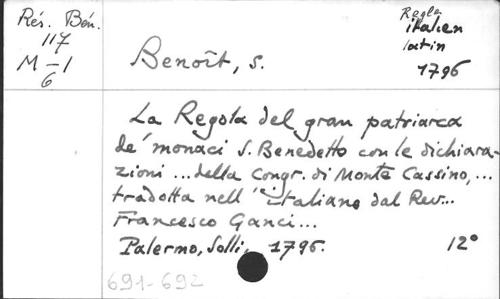 Rés. Bén.
117
M – 1
6
Benoît, S.
Regla
italien
latin
1796
La Regola del gran patriarca
de' monaci S. Benedetto con le dichiara-
zioni ... della Congr. di Monte Cassino, ...
tradotta nell' italiano dal Rev...
Francesco Ganci...
Palermo, Solli, 1796. 12°
691-692